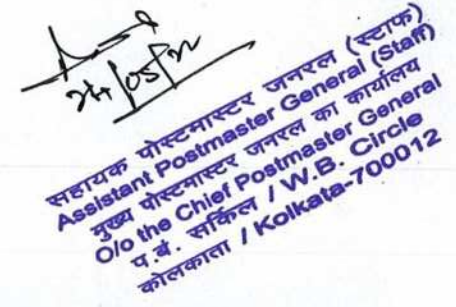 24/05/22
सहायक पोस्टमास्टर जनरल (स्टाफ)
Assistant Postmaster General (Staff)
मुख्य पोस्टमास्टर जनरल का कार्यालय
O/o the Chief Postmaster General
प.बं. सर्किल / W.B. Circle
कोलकाता / Kolkata-700012